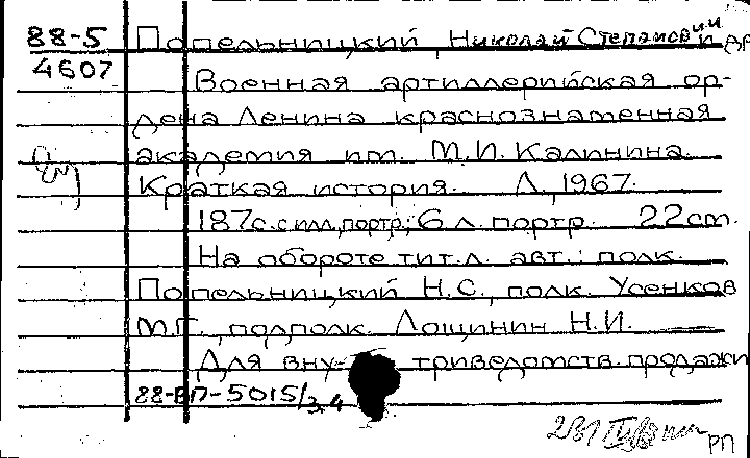 88-5 Попельницкий, Николай Степанович и др
4607 Военная артиллерийская ор-
дена Ленина краснознаменная
академия им. М.И. Калинина.
Краткая история. Л., 1967.
187с. с илл., портр.; 6 л. портр. 22 cm.
На обороте тит. л. авт.: полк.
Попельницкий Н.С., полк. Усенков
М.Г., подполк. Лощинин Н.И.
Для вну- триведомств. продажи
88-ВП-5015/3,4
РП